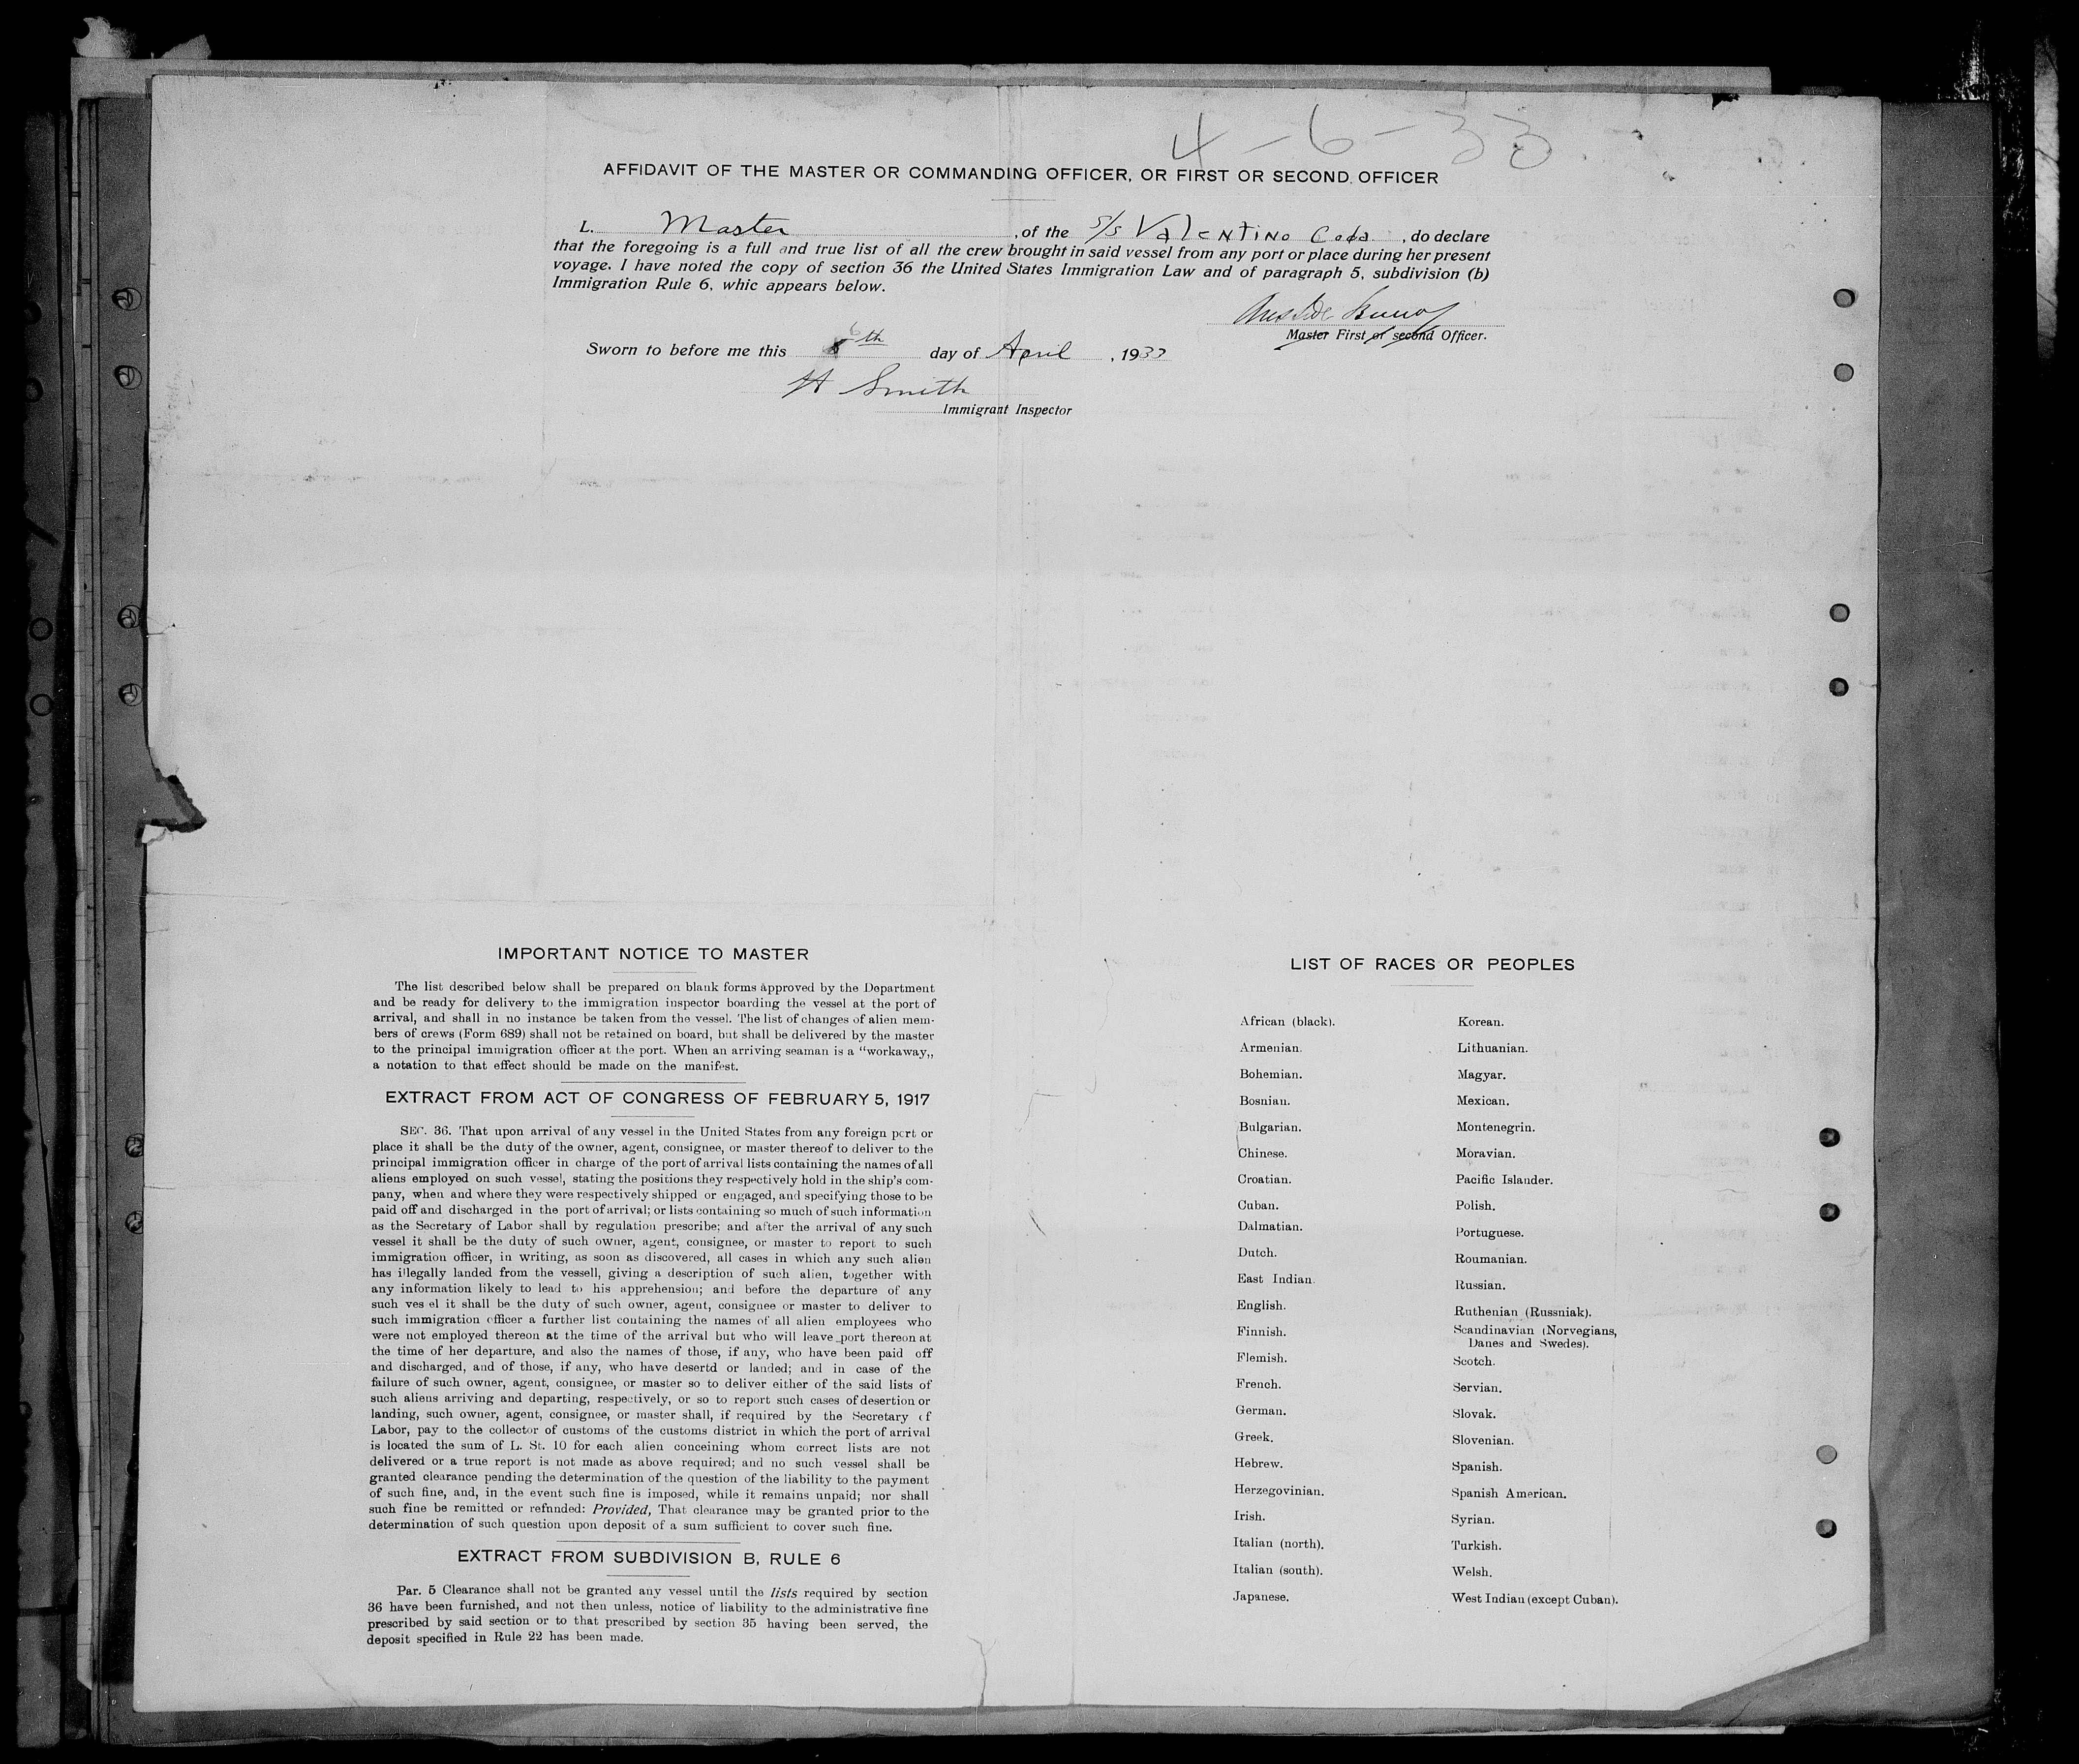 4-6-33
AFFIDAVIT OF THE MASTER OR COMMANDING OFFICER, OR FIRST OR SECOND OFFICER
L. Master , of the S/S Valentino Coda , do declare
that the foregoing is a full and true list of all the crew brought in said vessel from any port or place during her present
voyage. I have noted the copy of section 36 the United States Immigration Law and of paragraph 5, subdivision (b)
Immigration Rule 6, whic appears below.
Master First or second Officer.
Sworn to before me this 6th day of April , 1933
H Smith
Immigrant Inspector
IMPORTANT NOTICE TO MASTER
The list described below shall be prepared on blank forms approved by the Department
and be ready for delivery to the immigration inspector boarding the vessel at the port of
arrival, and shall in no instance be taken from the vessel. The list of changes of alien mem-
bers of crews (Form 689) shall not be retained on board, but shall be delivered by the master
to the principal immigration officer at the port. When an arriving seaman is a "workaway,,
a notation to that effect should be made on the manifest.
EXTRACT FROM ACT OF CONGRESS OF FEBRUARY 5, 1917
SEC. 36. That upon arrival of any vessel in the United States from any foreign port or
place it shall be the duty of the owner, agent, consignee, or master thereof to deliver to the
principal immigration officer in charge of the port of arrival lists containing the names of all
aliens employed on such vessel, stating the positions they respectively hold in the ship's com-
pany, when and where they were respectively shipped or engaged, and specifying those to be
paid off and discharged in the port of arrival; or lists containing so much of such information
as the Secretary of Labor shall by regulation prescribe; and after the arrival of any such
vessel it shall be the duty of such owner, agent, consignee, or master to report to such
immigration officer, in writing, as soon as discovered, all cases in which any such alien
has illegally landed from the vessell, giving a description of such alien, together with
any information likely to lead to his apprehension; and before the departure of any
such ves el it shall be the duty of such owner, agent, consignee or master to deliver to
such immigration officer a further list containing the names of all alien employees who
were not employed thereon at the time of the arrival but who will leave port thereon at
the time of her departure, and also the names of those, if any, who have been paid off
and discharged, and of those, if any, who have desertd or landed; and in case of the
failure of such owner, agent, consignee, or master so to deliver either of the said lists of
such aliens arriving and departing, respectively, or so to report such cases of desertion or
landing, such owner, agent, consignee, or master shall, if required by the Secretary of
Labor, pay to the collector of customs of the customs district in which the port of arrival
is located the sum of L. St. 10 for each alien conceining whom correct lists are not
delivered or a true report is not made as above required; and no such vessel shall be
granted clearance pending the determination of the question of the liability to the payment
of such fine, and, in the event such fine is imposed, while it remains unpaid; nor shall
such fine be remitted or refunded: Provided, That clearance may be granted prior to the
determination of such question upon deposit of a sum sufficient to cover such fine.
EXTRACT FROM SUBDIVISION B, RULE 6
Par. 5 Clearance shall not be granted any vessel until the lists required by section
36 have been furnished, and not then unless, notice of liability to the administrative fine
prescribed by said section or to that prescribed by section 35 having been served, the
deposit specified in Rule 22 has been made.
LIST OF RACES OR PEOPLES
African (black).
Armenian.
Bohemian.
Bosnian.
Bulgarian.
Chinese.
Croatian.
Cuban.
Dalmatian.
Dutch.
East Indian.
English.
Finnish.
Flemish.
French.
German.
Greek.
Hebrew.
Herzegovinian.
Irish.
Italian (north).
Italian (south).
Japanese.
Korean.
Lithuanian.
Magyar.
Mexican.
Montenegrin.
Moravian.
Pacific Islander.
Polish.
Portuguese.
Roumanian.
Russian.
Ruthenian (Russniak).
Scandinavian (Norvegians,
Danes and Swedes).
Scotch.
Servian.
Slovak.
Slovenian.
Spanish.
Spanish American.
Syrian.
Turkish.
Welsh.
West Indian (except Cuban).